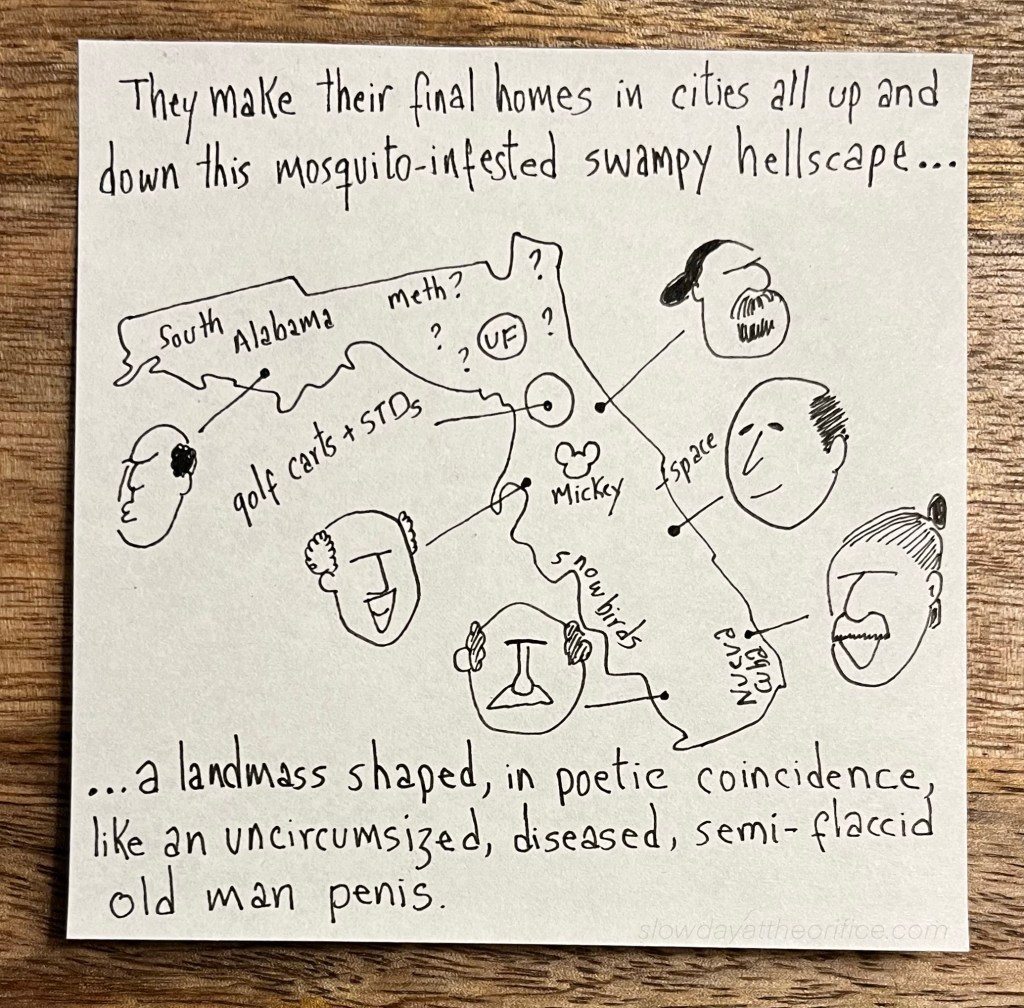 They make their final homes in cities all up and
down this mosquito-infested swampy hellscape...
South Alabama
meth?
?
?
?
?
UF
golf carts + STDs
Mickey
space
snowbirds
Nueva
Cuba
...a landmass shaped, in poetic coincidence,
like an uncircumsized, diseased, semi-flaccid
old man penis.
slowdayattheorifice.com